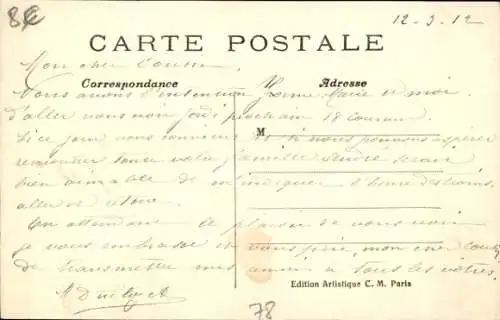 8
12-3-12
CARTE POSTALE
Mon cher Cousin
Correspondance
Adresse
Nous avons l'intention Jeanne Marie et moi
d'aller vous voir jeudi prochain 18 courant
M
Si ce jour vous convient et si nous pouvons espérer
rencontrer toute votre famille
bien aimable de m'indiquer l'heure des trains
aller et retour
En attendant le plaisir de vous voir
je vous embrasse et vous prie, mon cher Cousin
de transmettre mes amitiés à tous les vôtres
Edition Artistique C. M. Paris
78